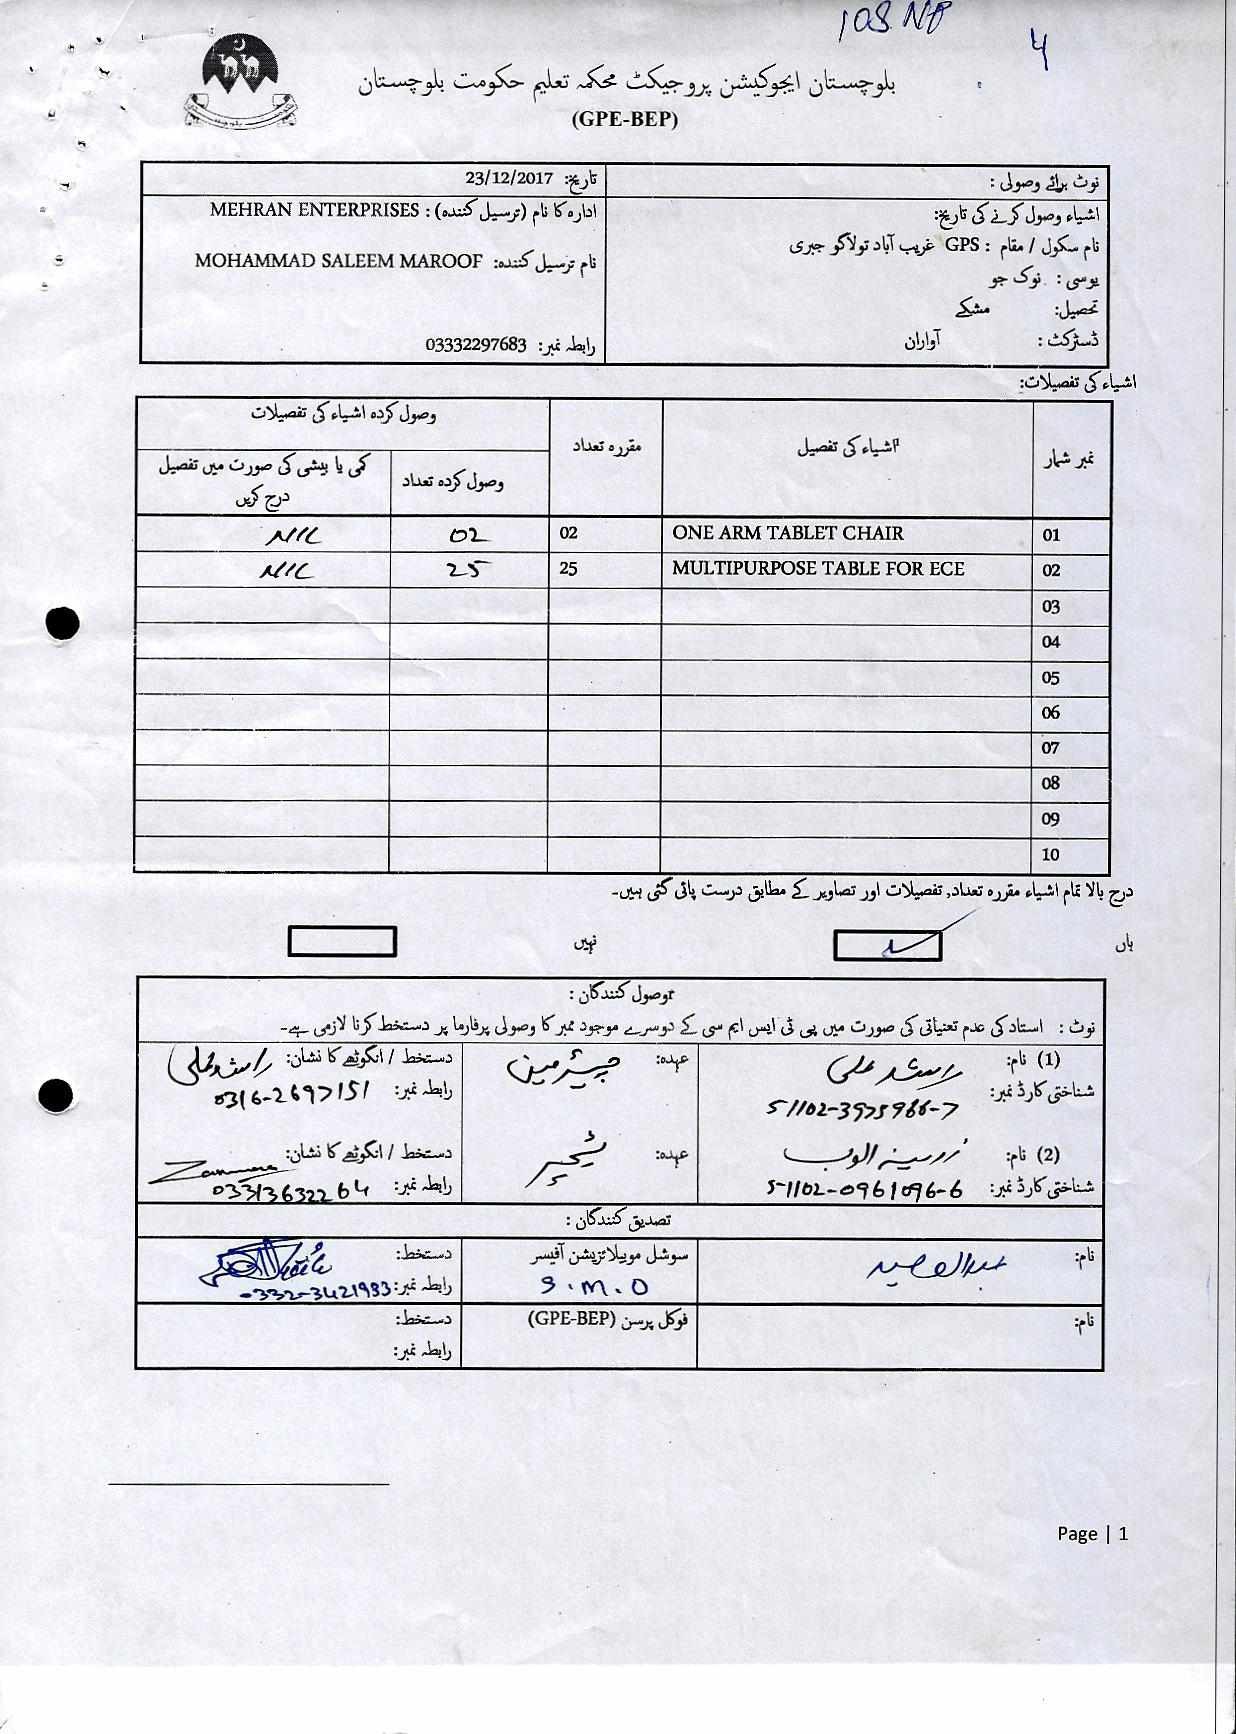 108 NP
4
بلوچستان ایجوکیشن پروجیکٹ محکمہ تعلیم حکومت بلوچستان
(GPE-BEP)
نوٹ برائے وصولی :
تاریخ: 23/12/2017
اشیاء وصول کرنے کی تاریخ:
نام سکول / مقام : GPS غریب آباد تولاگو جبری
یوسی : نوک جو
تحصیل: مشکے
ڈسٹرکٹ : آواران
ادارہ کا نام (ترسیل کنندہ) : MEHRAN ENTERPRISES
نام ترسیل کنندہ: MOHAMMAD SALEEM MAROOF
رابطہ نمبر: 03332297683
اشیاء کی تفصیلات:
نمبر شمار اشیاء کی تفصیل مقررہ تعداد وصول کردہ اشیاء کی تفصیلات
وصول کردہ تعداد کمی یا بیشی کی صورت میں تفصیل درج کریں
01 ONE ARM TABLET CHAIR 02 02 NIL
02 MULTIPURPOSE TABLE FOR ECE 25 25 NIL
03
04
05
06
07
08
09
10
درج بالا تمام اشیاء مقررہ تعداد, تفصیلات اور تصاویر کے مطابق درست پائی گئی ہیں۔
ہاں نہیں
وصول کنندگان :
نوٹ : استاد کی عدم تعیناتی کی صورت میں پی ٹی ایس ایم سی کے دوسرے موجود ممبر کا وصولی پرفارما پر دستخط کرنا لازمی ہے۔
(1) نام: راشد علی عہدہ: چیئرمین دستخط / انگوٹھے کا نشان: راشد علی
شناختی کارڈ نمبر: 51102-3975966-7 رابطہ نمبر: 0316-2697151
(2) نام: زرینہ ایوب عہدہ: ٹیچر دستخط / انگوٹھے کا نشان:
شناختی کارڈ نمبر: 51102-0961096-6 رابطہ نمبر: 03313632264
تصدیق کنندگان :
نام: سوشل موبیلائزیشن آفیسر دستخط:
S.M.O رابطہ نمبر: 0332-3421983
نام: فوکل پرسن (GPE-BEP) دستخط:
رابطہ نمبر:
Page | 1